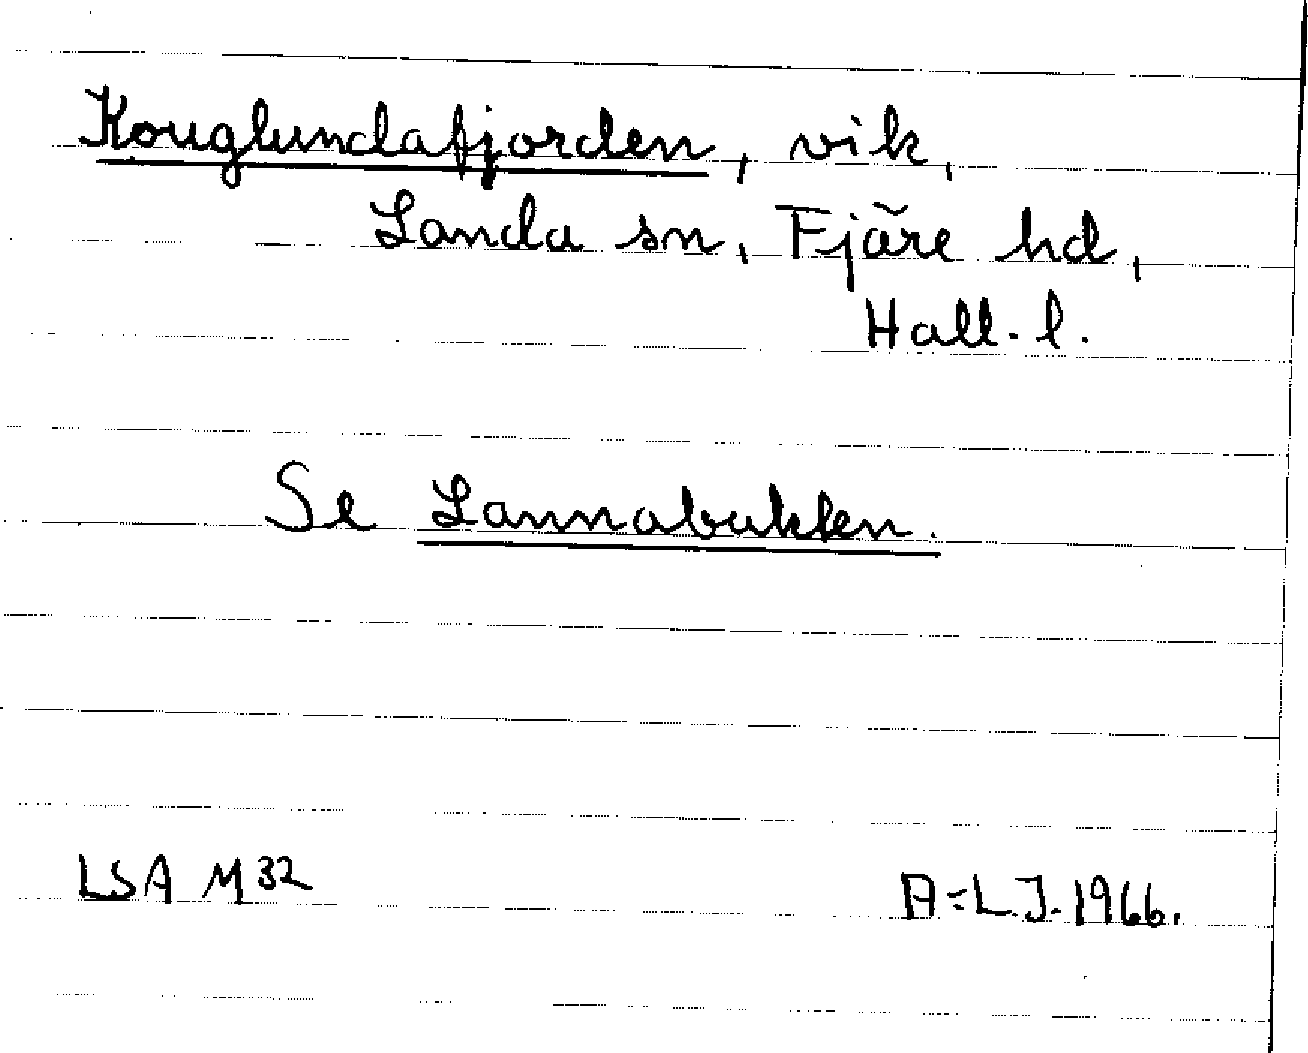 Kouglundafjorden, vik,
Landa sn, Fjäre hd,
Hall. l.
Se Lannabukten.
LSA M32
A-L.J. 1966.